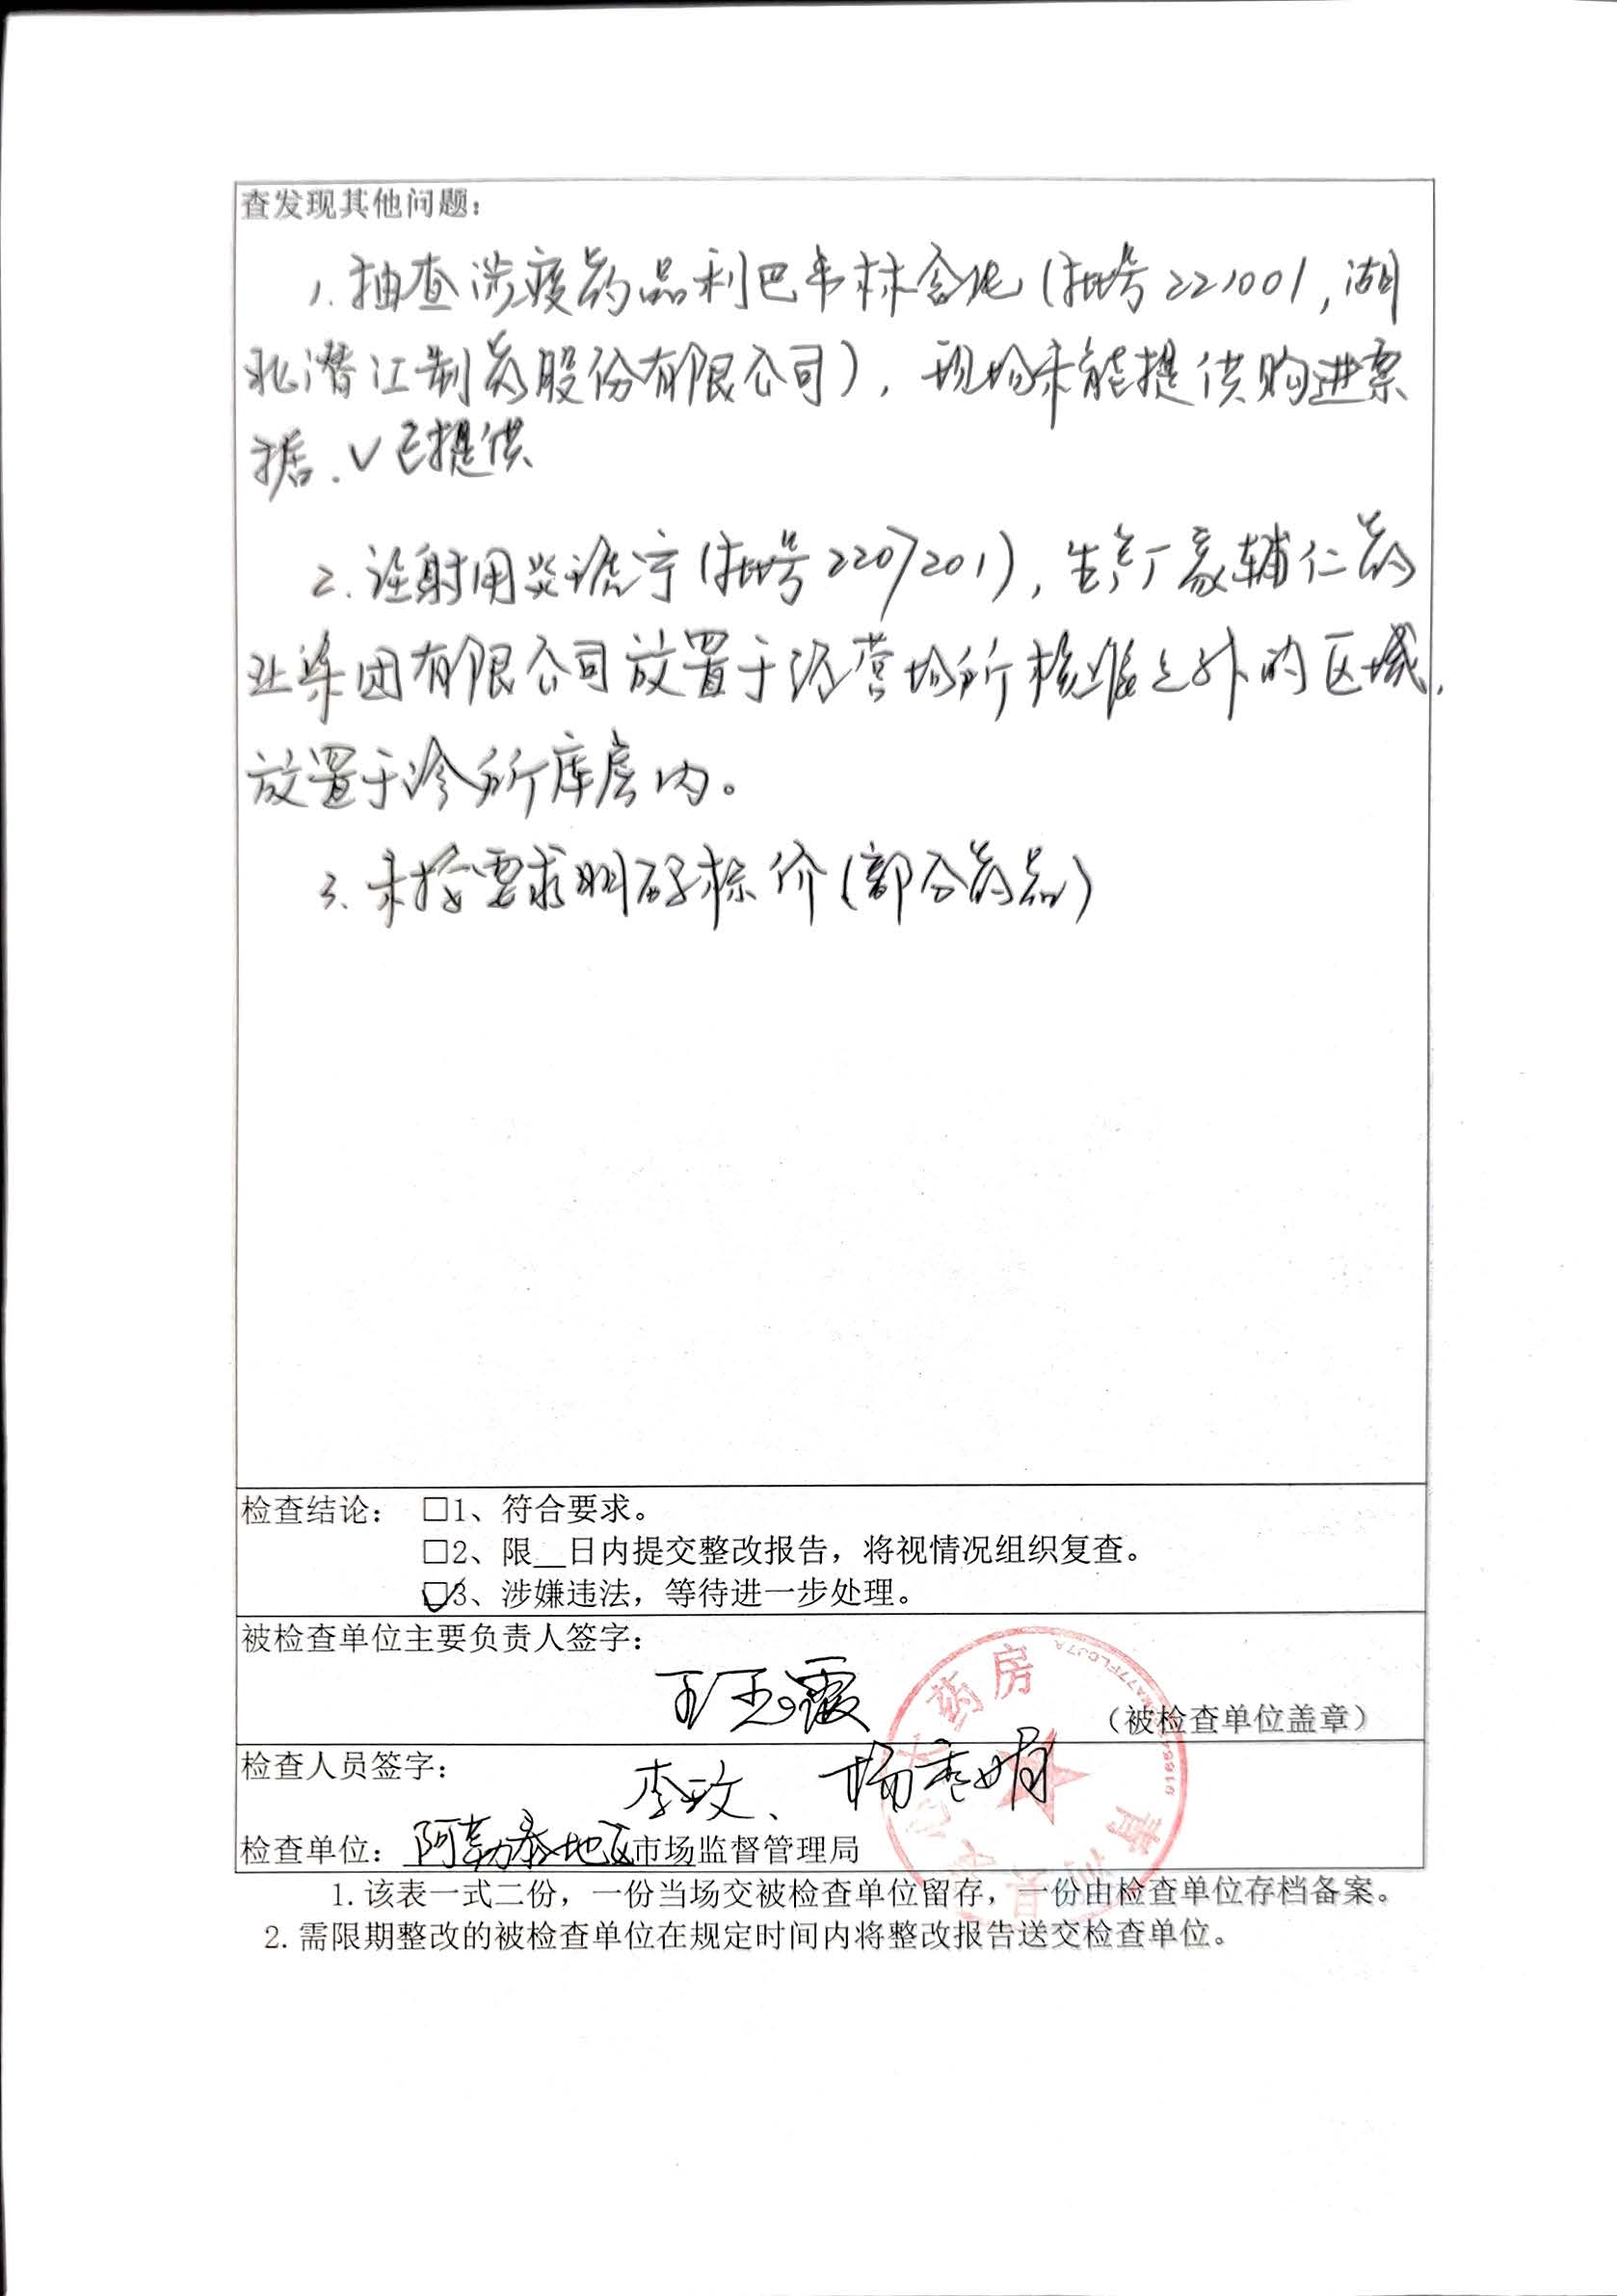 查发现其他问题：
1. 抽查涉疫药品利巴韦林含片（批号221001，湖
北潜江制药股份有限公司），现场未能提供购进票
据. √已提供
2. 注射用炎琥宁（批号2207201），生产厂家辅仁药
业集团有限公司放置于经营场所核准之外的区域，
放置于诊所库房内。
3、未按要求明码标价（部分药品）
检查结论： □1、符合要求。
□2、限__日内提交整改报告，将视情况组织复查。
☑3、涉嫌违法，等待进一步处理。
被检查单位主要负责人签字：
王玉霞
（被检查单位盖章）
检查人员签字：
李玫、杨秀娟
检查单位：阿勒泰地区市场监督管理局
大药房
1.该表一式二份，一份当场交被检查单位留存，一份由检查单位存档备案。
2.需限期整改的被检查单位在规定时间内将整改报告送交检查单位。